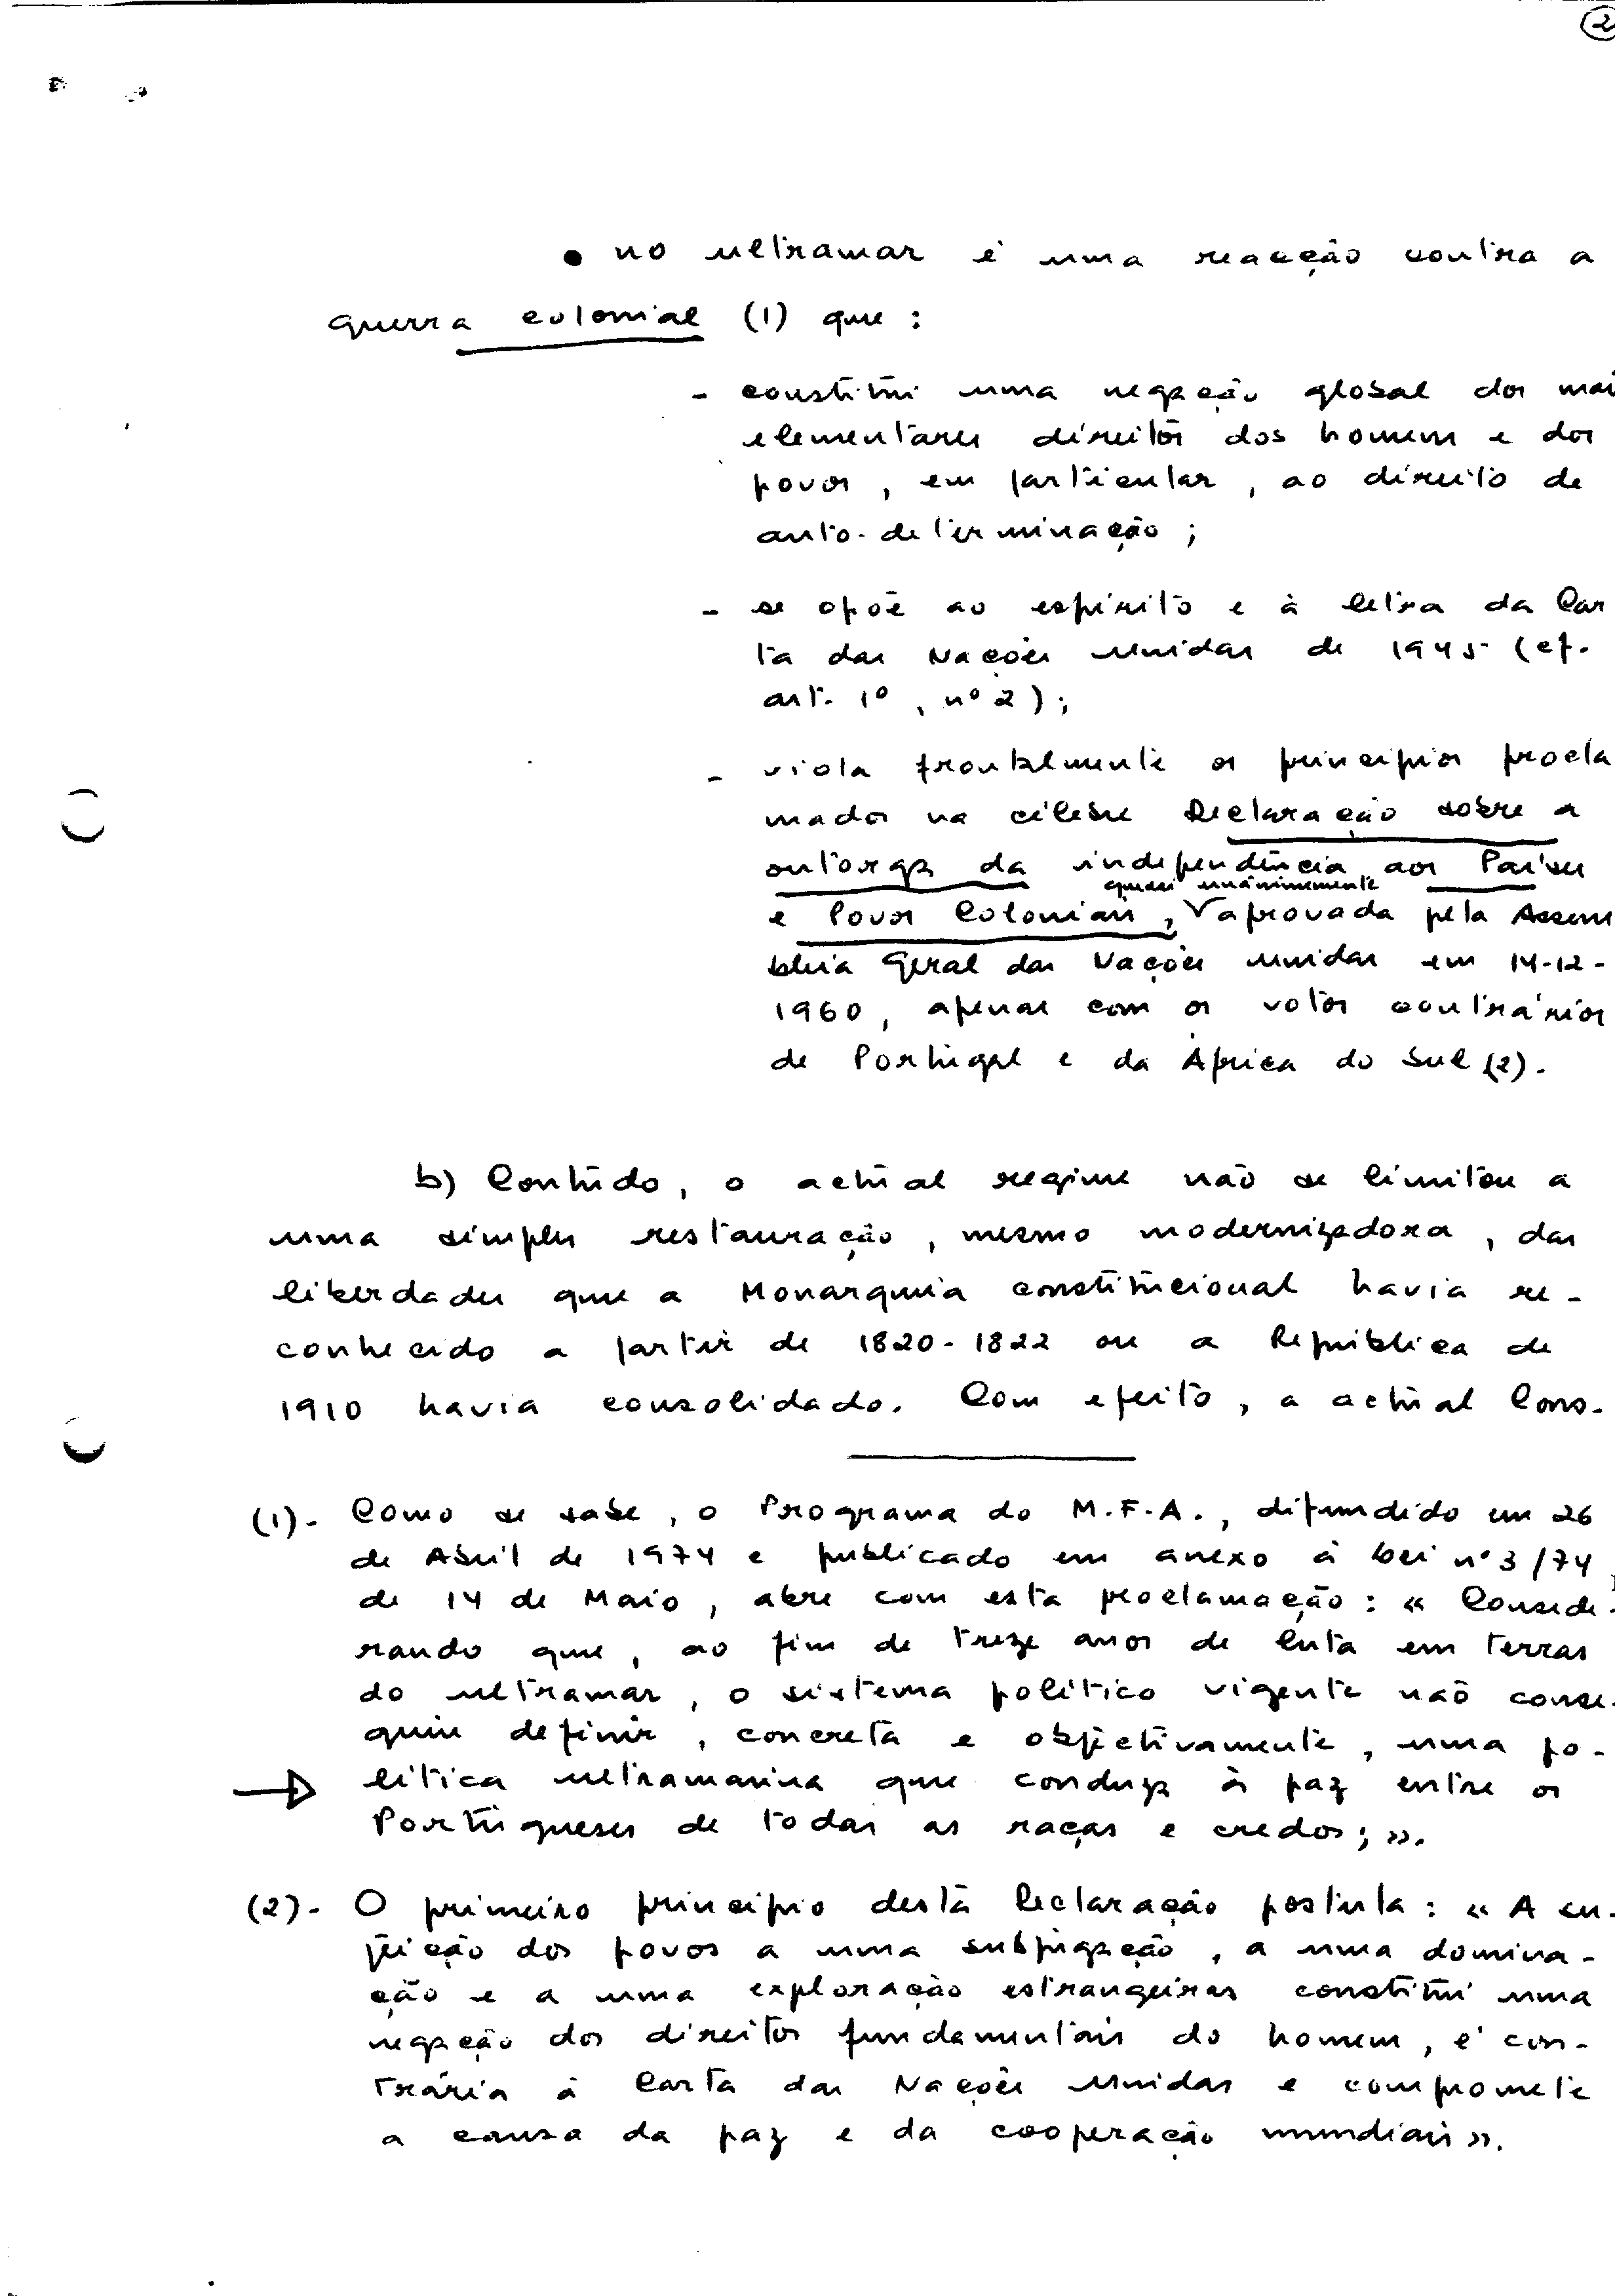 2
• no ultramar é uma reacção contra a
guerra colonial (1) que :
- constitui uma negação global dos mai
elementares direitos dos homem e dos
povos, em particular, ao direito de
auto-determinação ;
- se opõe ao espírito e à letra da Car
ta das Nações Unidas de 1945 (cf.
art. 1º, nº 2) ;
- viola frontalmente os princípios procla
mados na célebre Declaração sobre a
outorga da independência aos Países
quasi unânimemente
e Povos Coloniais, V aprovada pela Assem
bleia Geral das Nações Unidas em 14-12-
1960, apenas com os votos contrários
de Portugal e da África do Sul (2).
b) Contudo, o actual regime não se limitou a
uma simples restauração, mesmo modernizadora, das
liberdades que a Monarquia constitucional havia re-
conhecido a partir de 1820-1822 ou a República de
1910 havia consolidado. Com efeito, a actual Cons-
(1)- Como se sabe, o Programa do M.F.A., difundido em 26
de Abril de 1974 e publicado em anexo à Lei nº 3/74,
de 14 de Maio, abre com esta proclamação : « Conside-
rando que, ao fim de treze anos de luta em terras
do ultramar, o sistema político vigente não conse-
guiu definir, concreta e objectivamente, uma po-
→ lítica ultramarina que conduza à paz entre os
Portugueses de todas as raças e credos; ».
(2)- O primeiro princípio desta Declaração postula : « A su-
jeição dos povos a uma subjugação, a uma domina-
ção e a uma exploração estrangeiras constitui uma
negação dos direitos fundamentais do homem, é con-
trária à Carta das Nações Unidas e compromete
a causa da paz e da cooperação mundiais ».